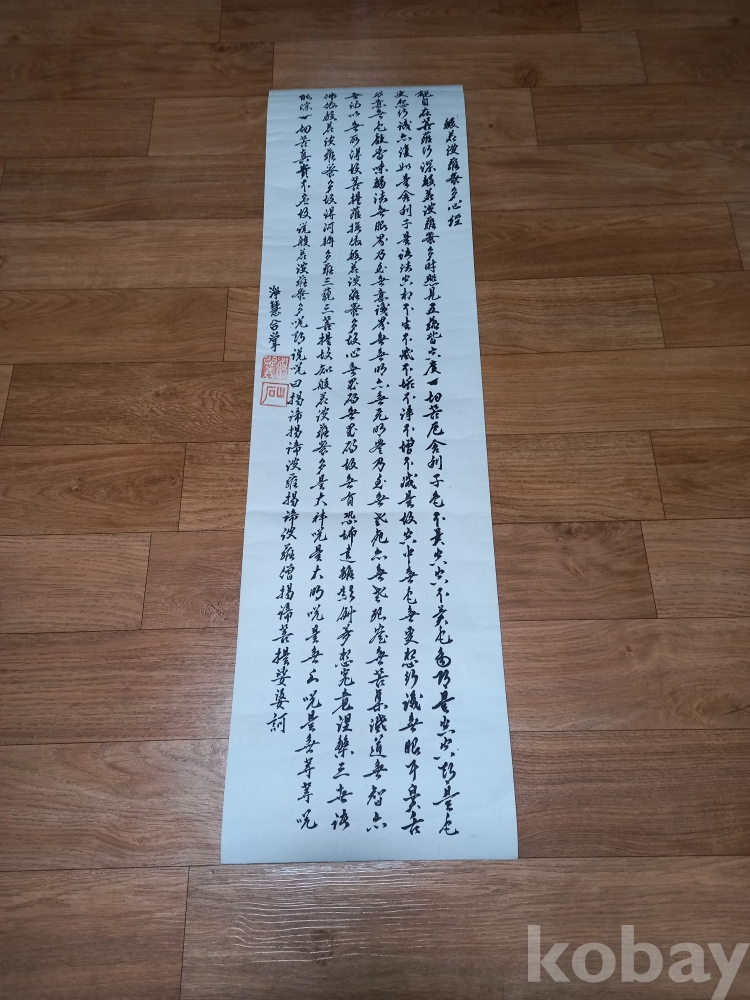 般若波羅蜜多心經
觀自在菩薩行深般若波羅蜜多時照見五蘊皆空度一切苦厄舍利子色不異空空不異色色即是空空即是色
受想行識亦復如是舍利子是諸法空相不生不滅不垢不淨不增不減是故空中無色無受想行識無眼耳鼻舌
身意無色聲香味觸法無眼界乃至無意識界無無明亦無無明盡乃至無老死亦無老死盡無苦集滅道無智亦
無得以無所得故菩提薩埵依般若波羅蜜多故心無罣碍無罣碍故無有恐怖遠離顛倒夢想究竟涅槃三世諸
佛依般若波羅蜜多故得阿耨多羅三藐三菩提故知般若波羅蜜多是大神呪是大明呪是無上呪是無等等呪
能除一切苦真實不虛故說般若波羅蜜多呪即說呪曰揭諦揭諦波羅揭諦波羅僧揭諦菩提娑婆訶
淨慧合掌
kobay